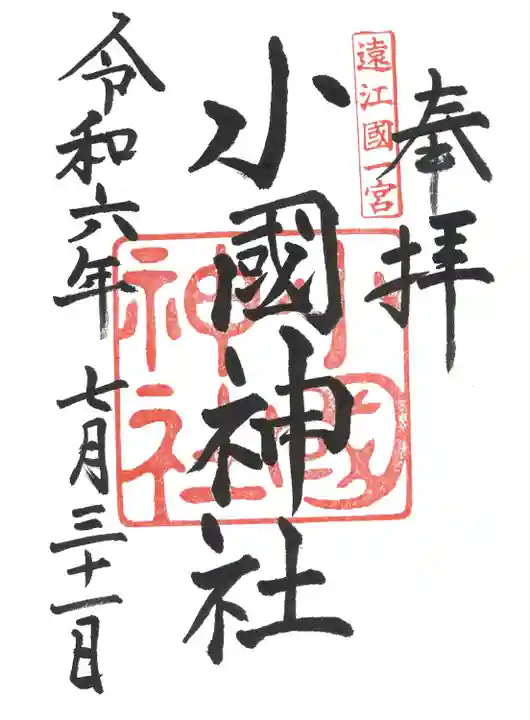 奉拝
遠江國一宮
小國神社
小國神社
令和六年 七月三十一日